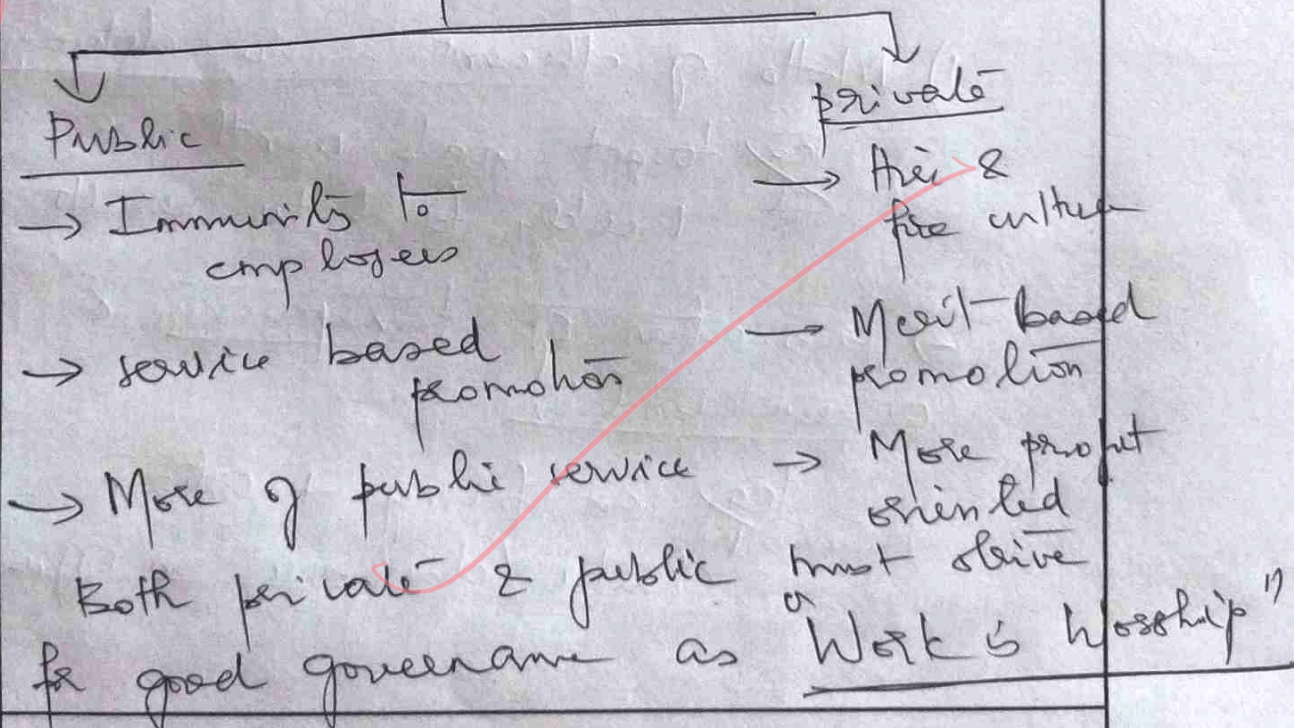 Public
→ Immunity to
employees
→ service based
promotion
→ More of public service
private
→ Hire &
fire culture
→ Merit based
promotion
→ More profit
oriented
Both private & public must strive
for good governance as "Work is Worship"